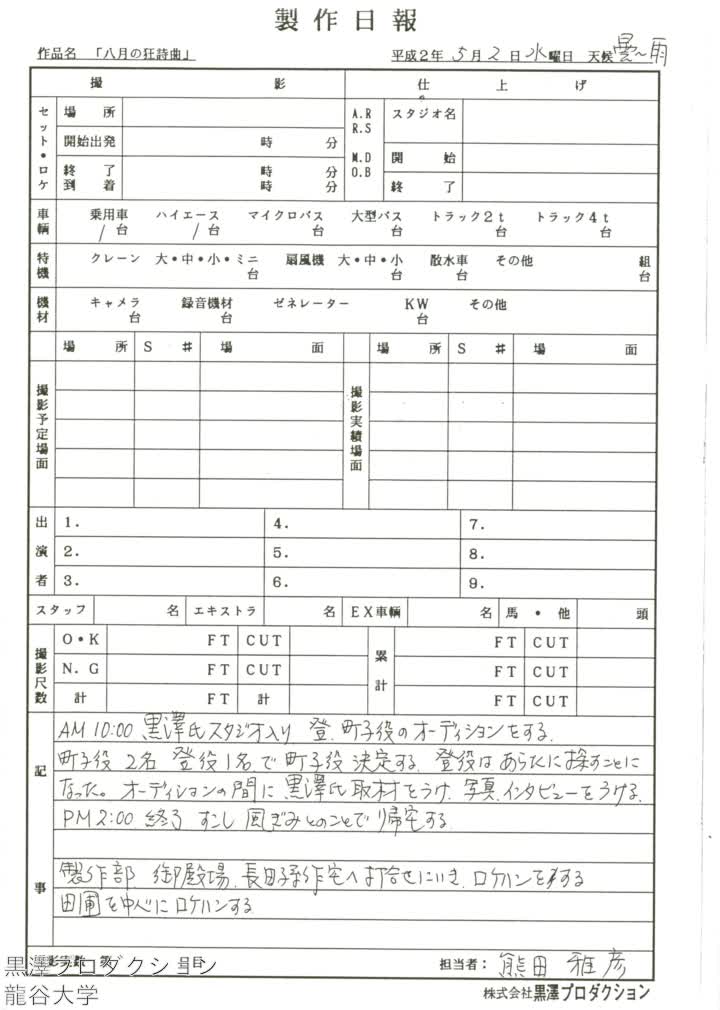 製作日報
作品名 「八月の狂詩曲」 平成2年 5月 2日 水曜日 天候 曇〜雨
撮 影 仕 上 げ
セット・ロケ 場 所 A.R R.S スタジオ名
開始出発 時 分 M.D O.B 開 始
終 了 時 分
到 着 時 分 終 了
車輌 乗用車 ハイエース マイクロバス 大型バス トラック2t トラック4t
1台 1台 台 台 台 台
特機 クレーン 大・中・小・ミニ 扇風機 大・中・小 散水車 その他 組
台 台 台 台
機材 キャメラ 録音機材 ゼネレーター KW その他
台 台 台
場 所 S # 場 面 場 所 S # 場 面
撮影予定場面 撮影実績場面
出演者 1. 4. 7.
2. 5. 8.
3. 6. 9.
スタッフ 名 エキストラ 名 EX車輌 名 馬・他 頭
撮影尺数 O・K FT CUT 累計 FT CUT
N.G FT CUT FT CUT
計 FT 計 FT CUT
記事
AM 10:00 黒澤氏スタジオ入り 登、町子役のオーディションをする、
町子役 2名 登役1名で町子役 決定する、登役はあらたに探すことに
なった。オーディションの間に黒澤氏取材をうけ、写真、インタビューをうける、
PM 2:00 終了 すこし風ぎみとのことで帰宅する、
製作部 御殿場、長田孝作宅へ打合せにいき、ロケハンをする
田圃を中心にロケハンする
撮影実績 第 号 日目 担当者: 熊田 雅彦
株式会社黒澤プロダクション
黒澤プロダクション
龍谷大学